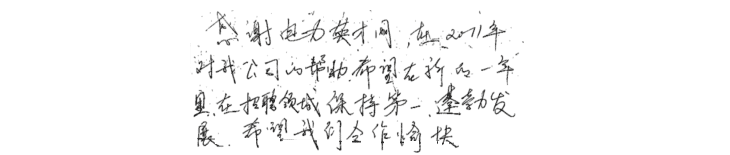 感谢电力英才网,在2011年
对我公司的帮助希望在新的一年
里,在招聘领域保持第一,蓬勃发
展,希望我们合作愉快